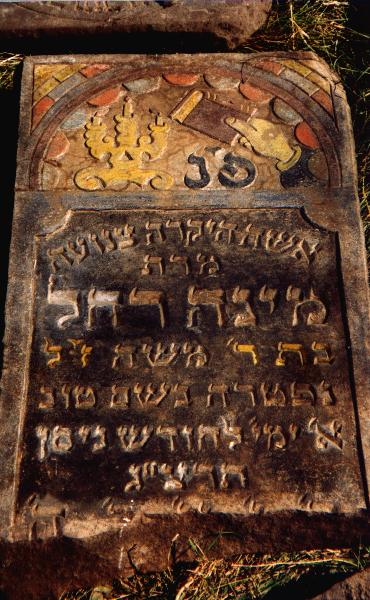 פנ
אשה היקרה צנועה
מרת
מינה רחל
בת ר' משה ז"ל
נפטרה בשם טוב
א' ימי לחודש ניסן